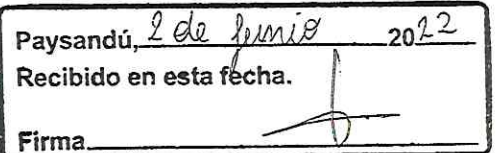 Paysandú, 2 de Junio 2022
Recibido en esta fecha.
Firma